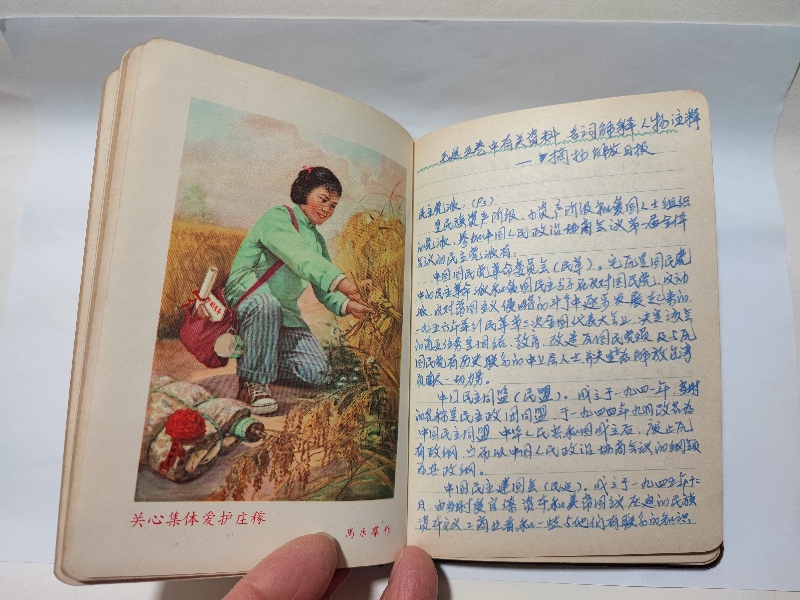 关心集体爱护庄稼
馬乐群作
毛选五卷中有关资料 名词解释 人物注释
——摘抄解放日报
民主党派：(P5)
是民族资产阶级、小资产阶级和爱国人士组织
的党派，参加中国人民政治协商会议第一届全体
会议的民主党派有：
中国国民党革命委员会（民革）。它是国民党
中的民主革命派和爱国民主分子在反对国民党反动
派、反对帝国主义侵略的斗争中逐步发展起来的。
一九五六年举行民革第三次全国代表大会，决定该会
的主任务是团结、教育、改造原国民党员及与
国民党有历史联系的中上层人士并为解放台湾
贡献一切力量。
中国民主同盟（民盟）。成立于一九四一年，当时
的名称是民主政团同盟，于一九四四年九月改名为
中国民主同盟。中华人民共和国成立后，废止原
有政纲，而以中国人民政治协商会议的纲领
为其政纲。
中国民主建国会（民建）。成立于一九四五年十二
月，由当时受官僚资本和美帝国主义压迫的民族
资本主义工商业者和一些与他们有联系的知识